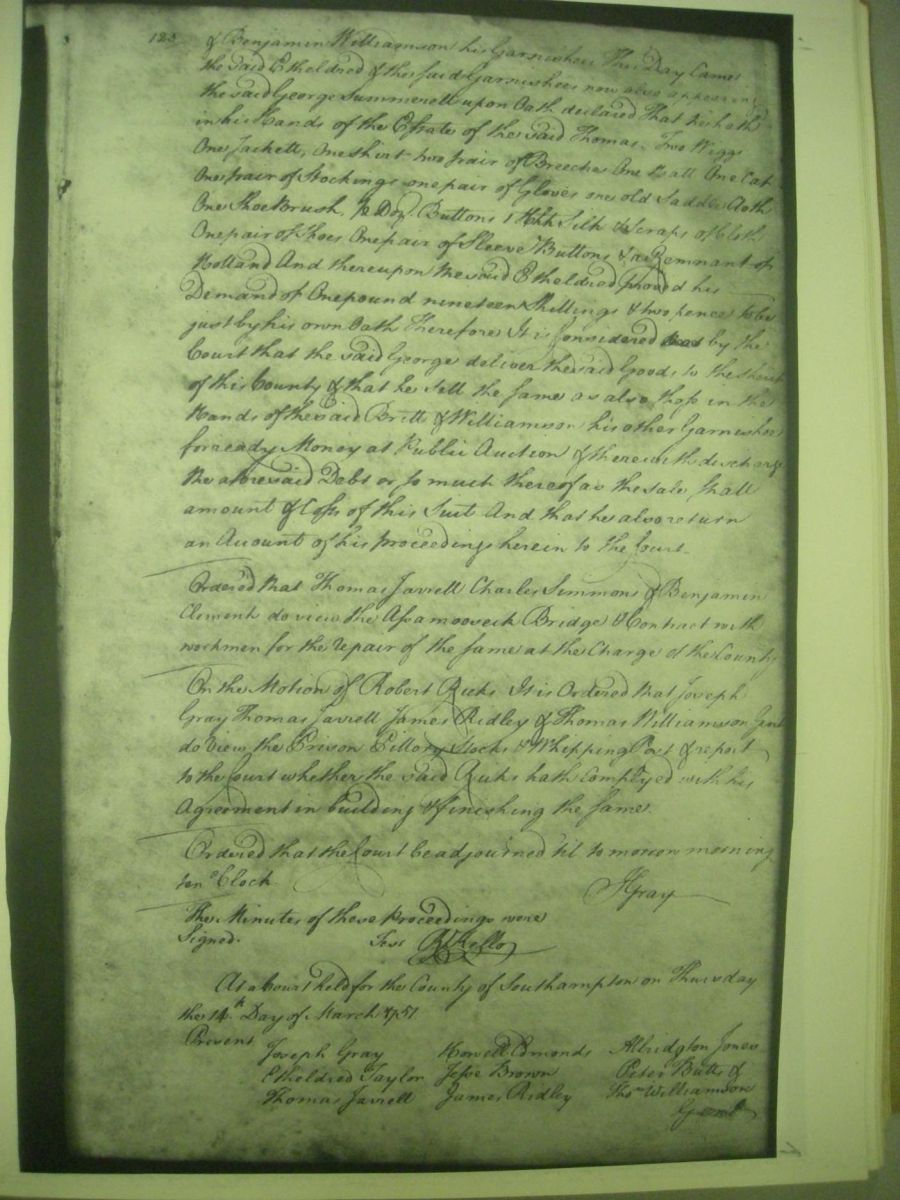 123
& Benjamin Williamson his Garnishees This Day Came
the said Etheldred & the said Garnishees now also appearing
the said George Summerell upon Oath declared That he hath
in his Hands of the Estate of the said Thomas, Two Wiggs
One Jackett, One Shirt two pair of Breeches One Hatt One Cap
One pair of Stockings one pair of Gloves one old Saddle Cloth
One Shoe Brush, Doz. Buttons 1 Silk & Scraps of Cloth
One pair of Shoes One pair of Sleeve Buttons & a Remnant of
Holland And thereupon the said Etheldred proved his
Demand of One pound nineteen Shillings & two pence to be
just by his own Oath Therefore It is Considered by the
Court that the said George deliver the said Goods to the Sheriff
of this County & that he Sell the Same as also those in the
Hands of the said Britt & Williamson his other Garnishees
for ready Money at Publick Auction & therewith discharge
the aforesaid Debt or so much thereof as the sale shall
amount & Costs of this Suit And that he also return
an Account of his proceedings herein to the Court
Ordered that Thomas Jarrell Charles Simmons & Benjamin
Clement do view the Assamooseck Bridge & Contract with
workmen for the repair of the same at the Charge of the County
On the Motion of Robert Ricks It is Ordered that Joseph
Gray Thomas Jarrell James Ridley & Thomas Williamson Gent
do View the Prison Pillory Stocks & Whipping Post & report
to the Court whether the said Ricks hath Complyed with his
Agreement in building & finishing the Same.
Ordered that the Court be adjourned 'til to morrow morning
ten o Clock
J Gray
The Minutes of these Proceedings were
Signed.
Test R Kello
At a Court held for the County of Southampton on Thursday
the 14th Day of March 1751
Present
Joseph Gray Howell Edmonds Albridgton Jones
Etheldred Taylor Jesse Brown Peter Butts &
Thomas Jarrell James Ridley Thos Williamson
Gent